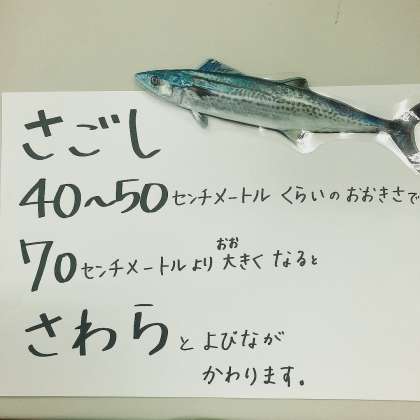 さごし
40〜50センチメートル くらいの おおきさで
おお
70センチメートルより 大きく なると
さわら と よびなが
かわります。